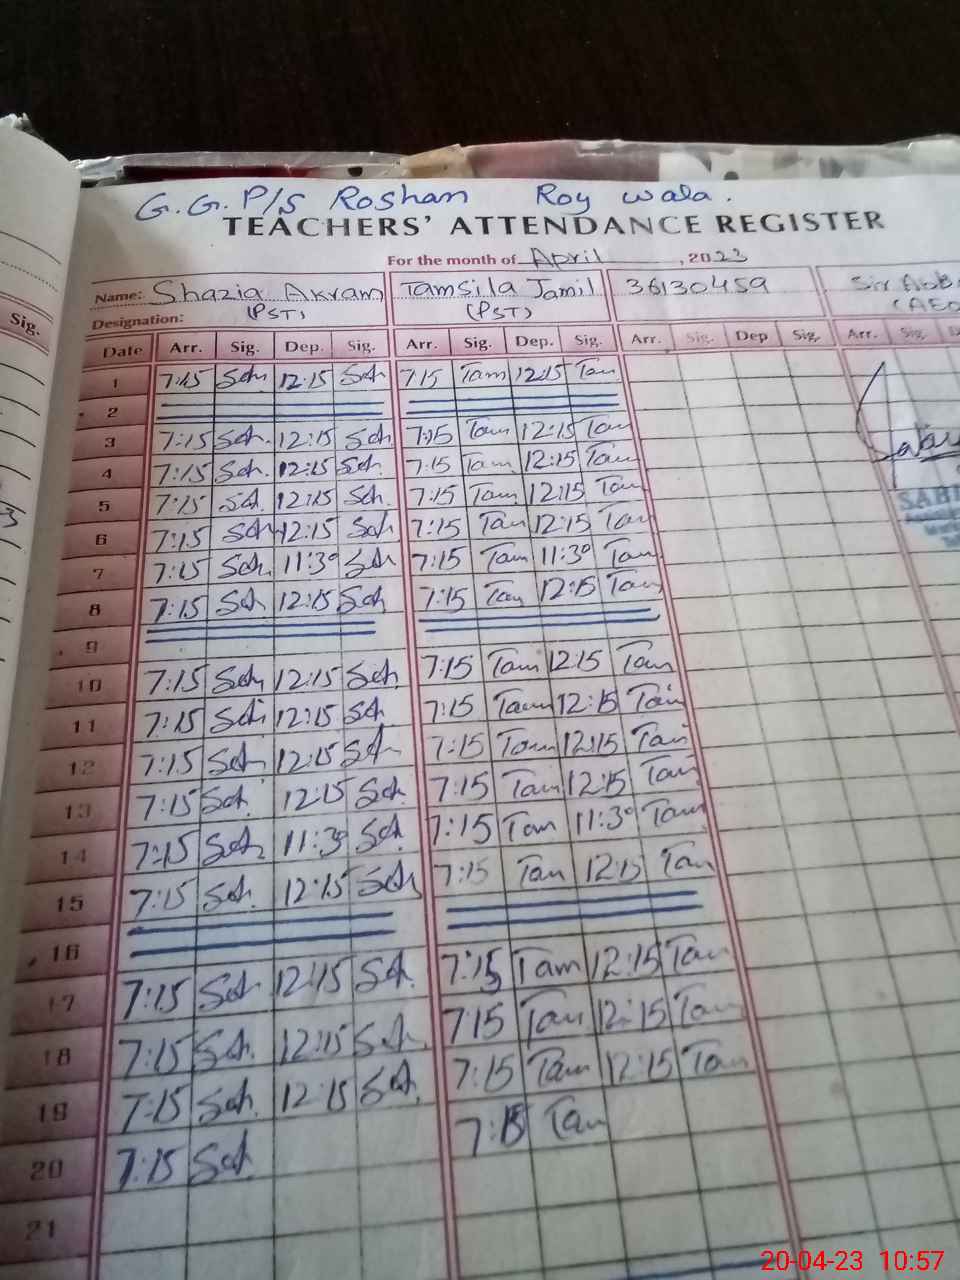 G.G.P/S Roshan Roy wala.
TEACHERS' ATTENDANCE REGISTER
For the month of April, 2023
Sig.
Name: Shazia Akram Tamsila Jamil 36130459
Designation: (PST) (PST)
Date Arr. Sig. Dep. Sig. Arr. Sig. Dep. Sig. Arr. Sig. Dep Sig. Arr. Sig.
1 7:15 Sch 12:15 Sch 7:15 Tam 12:15 Tam
2
3 7:15 Sch. 12:15 Sch. 7:15 Tam 12:15 Tam
4 7:15 Sch. 12:15 Sch. 7:15 Tam 12:15 Tam
5 7:15 Sch. 12:15 Sch. 7:15 Tam 12:15 Tam
6 7:15 Sch 12:15 Sch 7:15 Tam 12:15 Tam
7 7:15 Sch. 11:30 Sch 7:15 Tam 11:30 Tam
8 7:15 Sch 12:15 Sch 7:15 Tam 12:15 Tam
9
10 7:15 Sch 12:15 Sch. 7:15 Tam 12:15 Tam
11 7:15 Sch 12:15 Sch. 7:15 Tam 12:15 Tam
12 7:15 Sch 12:15 Sch 7:15 Tam 12:15 Tam
13 7:15 Sch. 12:15 Sch. 7:15 Tam 12:15 Tam
14 7:15 Sch 11:30 Sch. 7:15 Tam 11:30 Tam
15 7:15 Sch. 12:15 Sch 7:15 Tam 12:15 Tam
16
17 7:15 Sch 12:15 Sch. 7:15 Tam 12:15 Tam
18 7:15 Sch. 12:15 Sch. 7:15 Tam 12:15 Tam
19 7:15 Sch. 12:15 Sch. 7:15 Tam 12:15 Tam
20 7:15 Sch 7:15 Tam
21
20-04-23 10:57